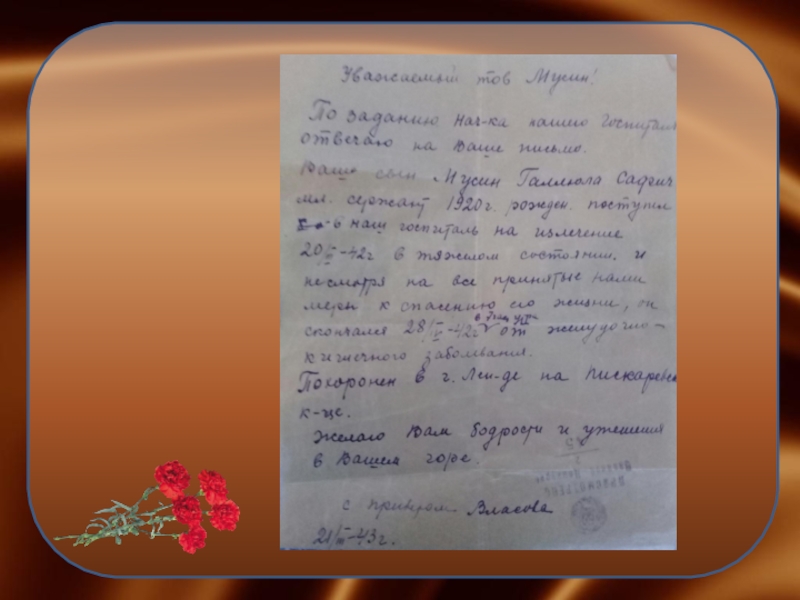 Уважаемый тов Мусин!
По заданию нач-ка нашего Госпиталя
отвечаю на Ваше письмо.
Ваш сын Мусин Галлюла Сафич
мл. сержант 1920 г. рожден. поступил
в наш госпиталь на излечение
20/II-42г в тяжелом состоянии, и
несмотря на все принятые нами
меры к спасению его жизни, он
скончался 28/II-42г от желудочно-
кишечного заболевания.
Похоронен в г. Лен-де на Пискаревс
к-це.
Желаю Вам бодрости и утешения
в Вашем горе.
с приветом Власова
21/III-43г.